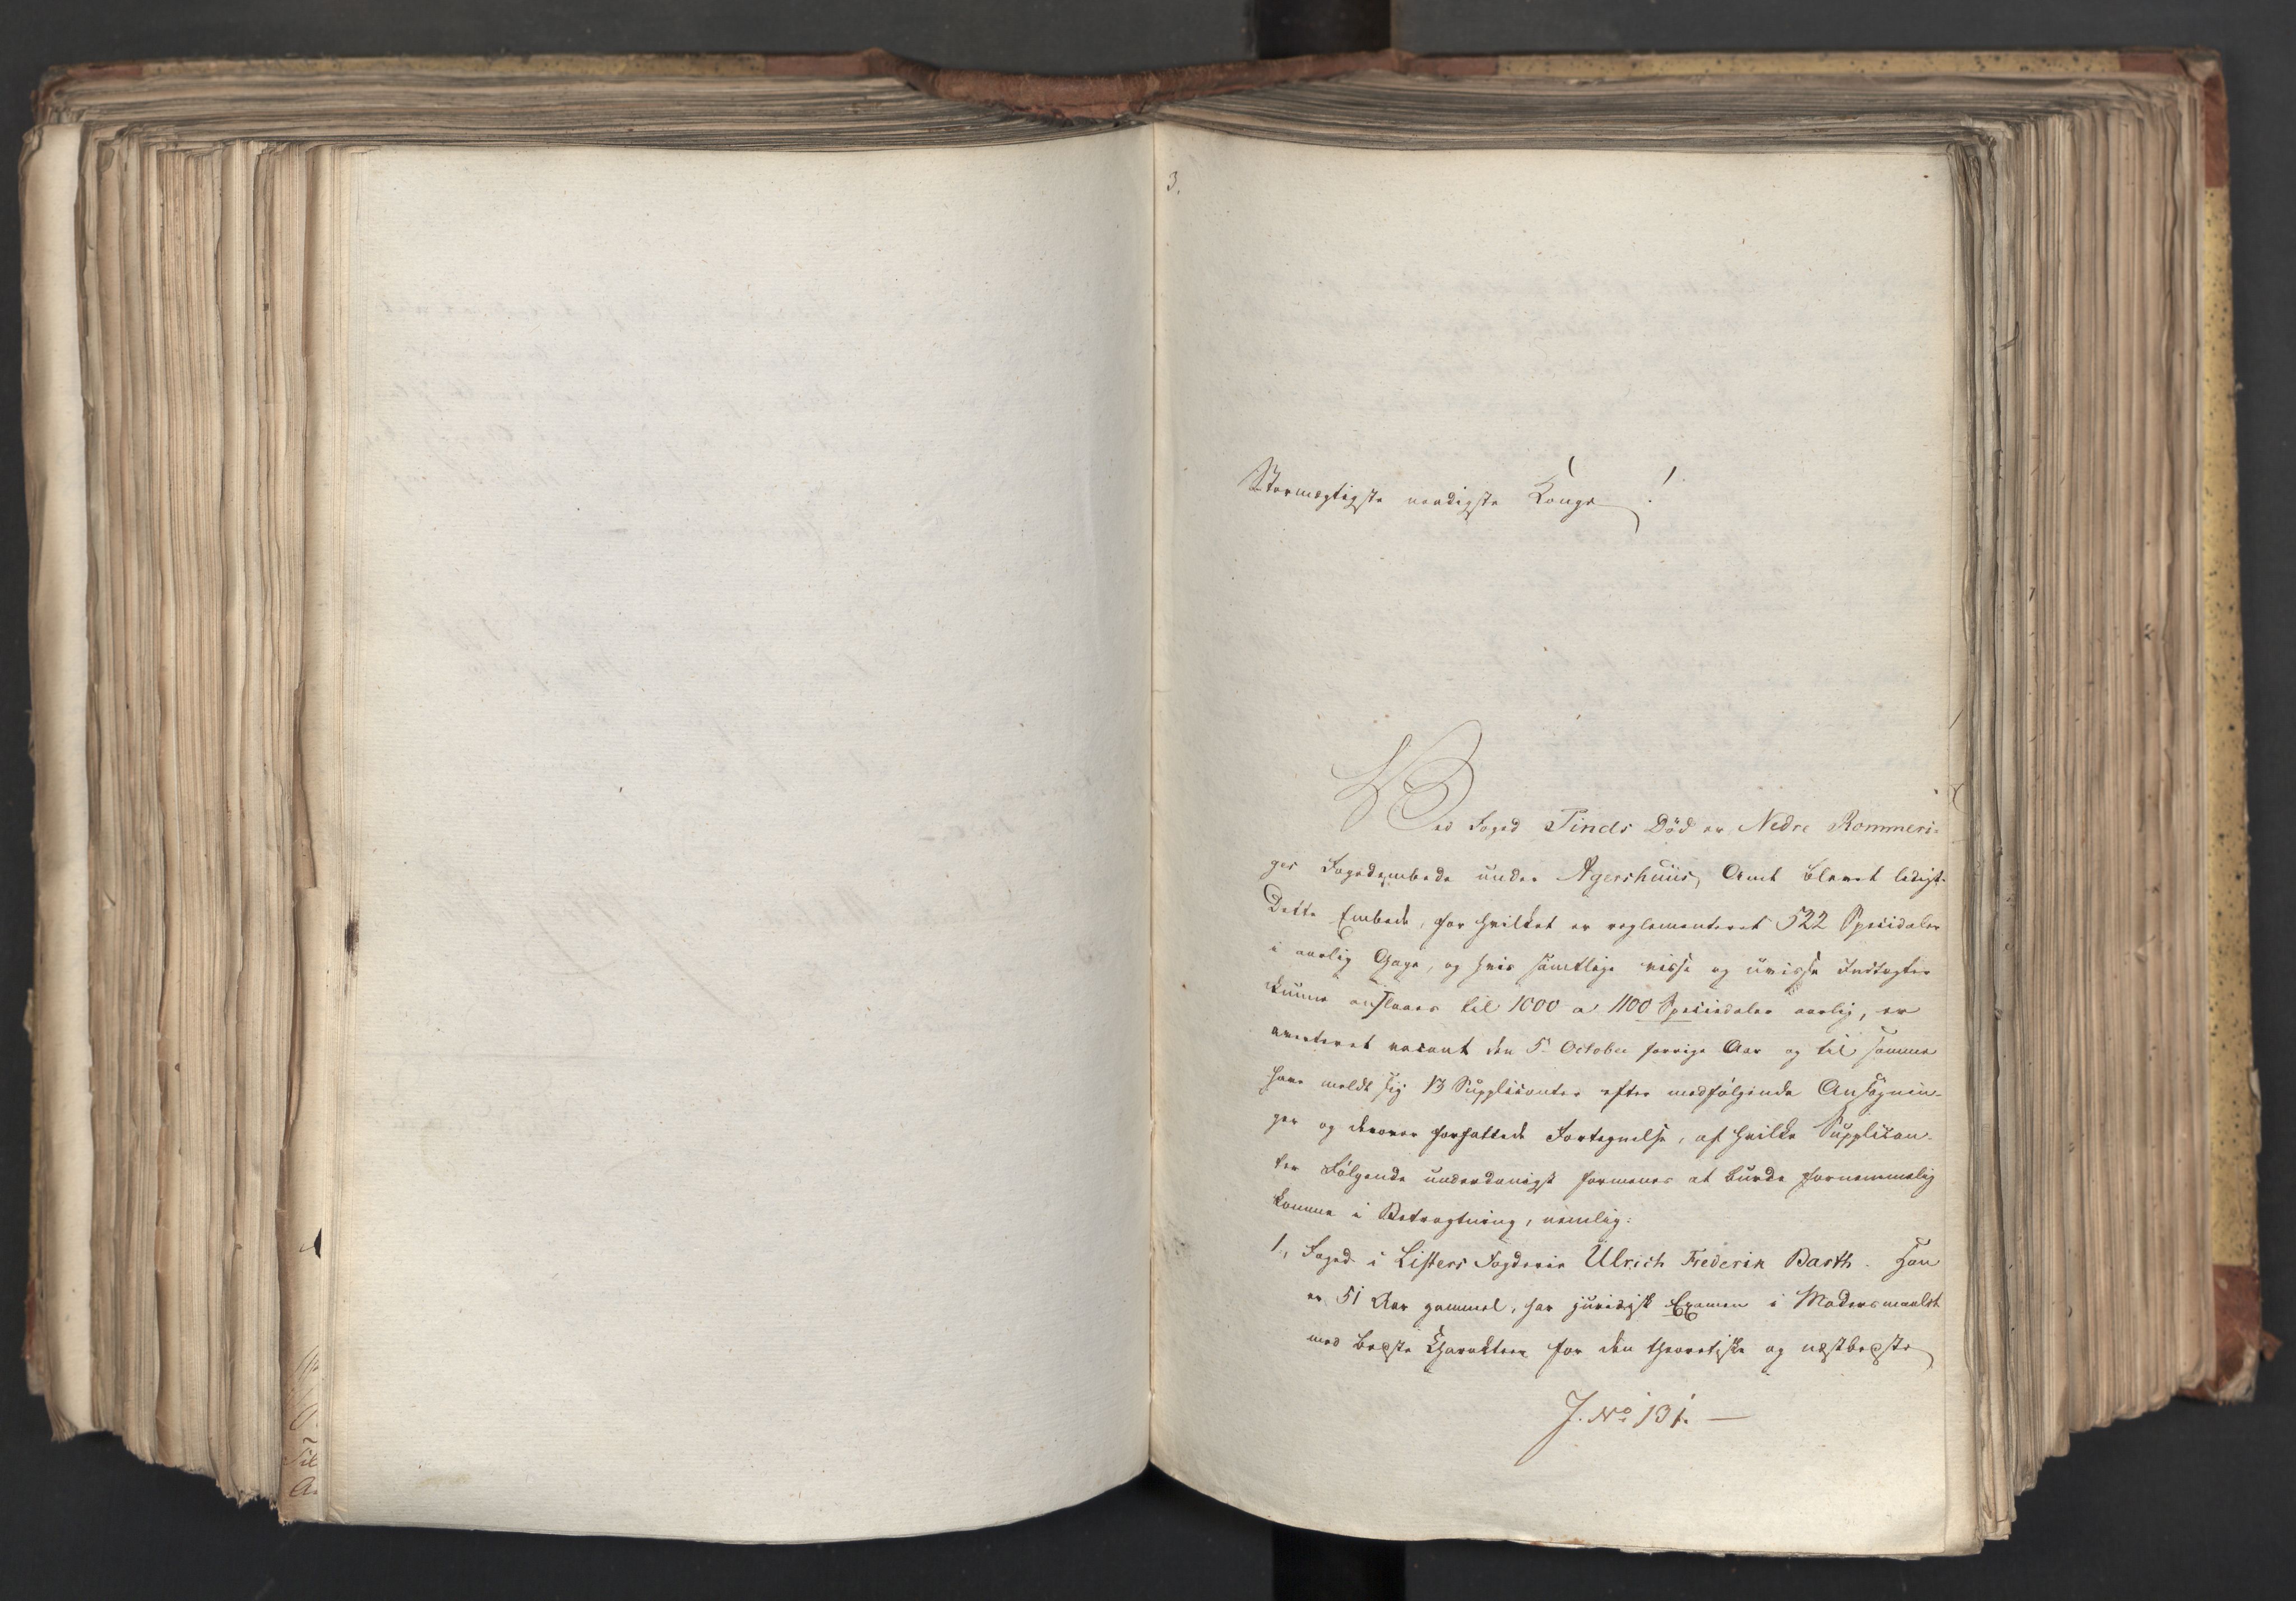 3.
Stormægtigste naadigste Konge!
Ved Foged Tinds Död er Nedre Rommeri-
ges Fogedembede under Agershuus Amt blevet ledigt.
Dette Embede, for hvilket er reglementeret 522 Speciedaler
i aarlig Gage, og hvis samtlige visse og uvisse Indtægter
kunne anslaaes til 1000 a 1100 Speciedaler aarlig, er
averteret vacant den 5te October forrige Aar og til samme
have meldt sig 13 Supplicanter efter medfølgende Ansøgnin-
ger og derover forfattede Fortegnelse, af hvilke Supplican-
ter Følgende underdanigst formenes at burde fornemmelig
komme i Betragtning, nemlig:
1, Foged i Listers Fogderie Ulrich Frederik Barth. Han
er 51 Aar gammel, har juridisk Examen i Modersmaalet
med bedste Charakteer for den theoretiske og næstbedste
J. No 131. —
Til
A